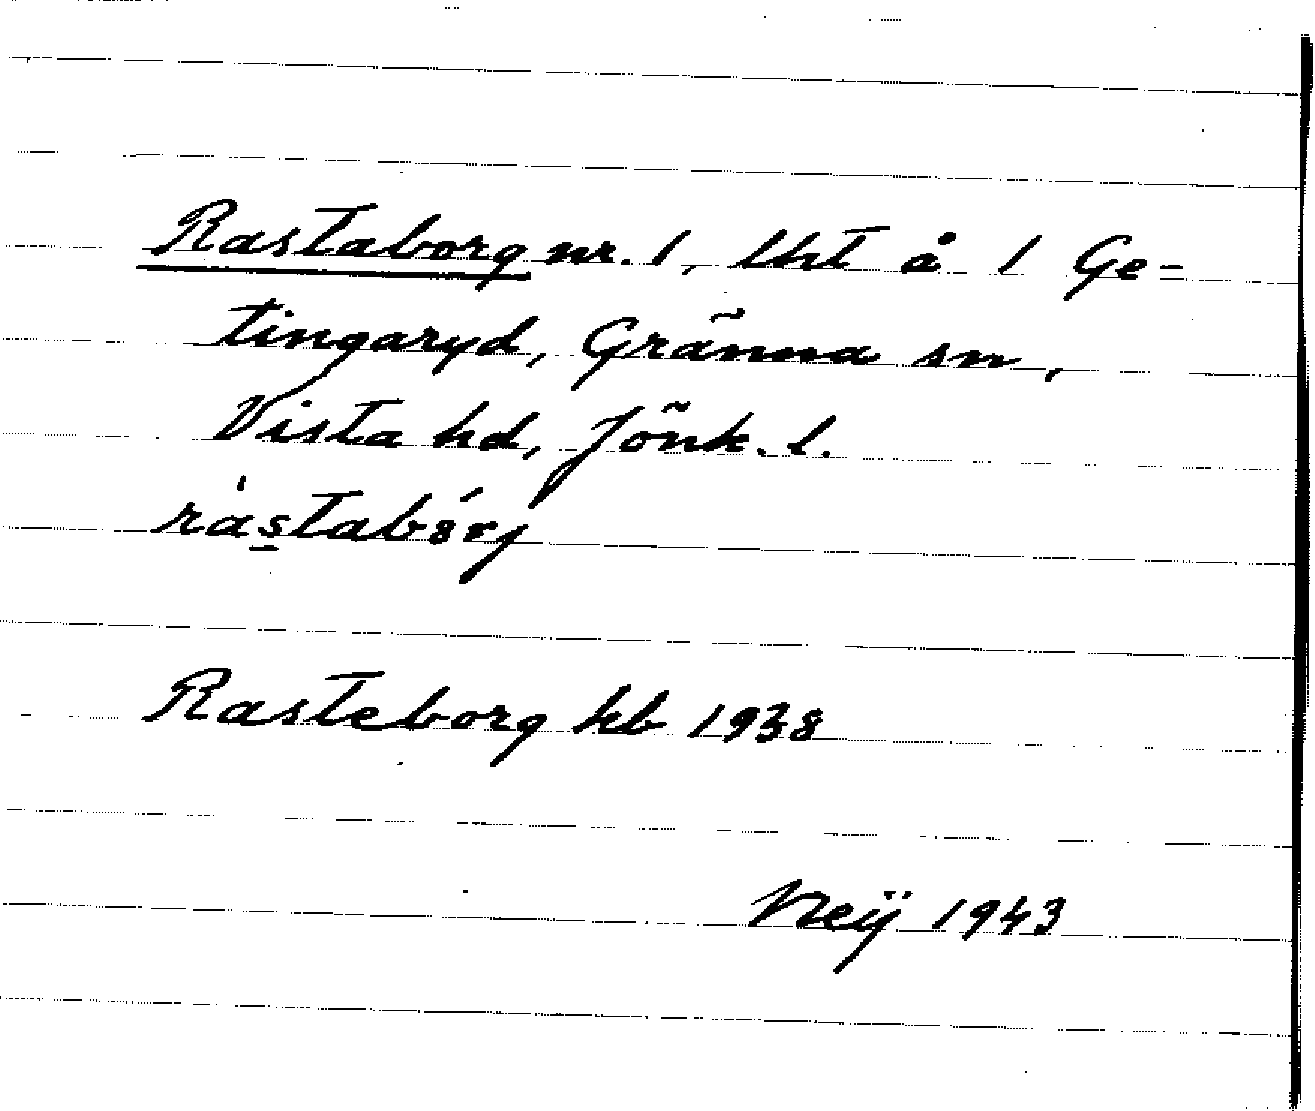 Rastaborg nr. 1, lht å 1 Ge-
tingaryd, Gränna sn,
Vista hd, Jönk. l.
Rasteborg kb 1938
Neij 1943